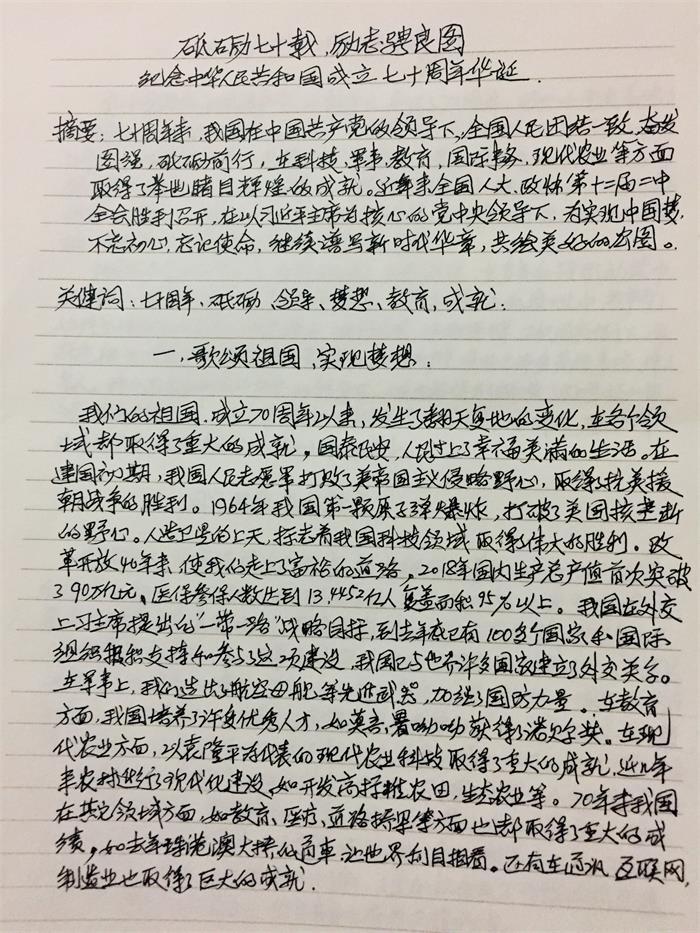 砥砺七十载,励志骋良图
纪念中华人民共和国成立七十周年华诞.
摘要:七十周年来,我国在中国共产党的领导下,全国人民团结一致,奋发
图强,砥砺前行,在科技、军事、教育、国际事务、现代农业等方面
取得了举世睹目辉煌的成就。近年来全国人大、政协第十三届二中
全会胜利召开,在以习近平主席为核心的党中央领导下,为实现中国梦,
不忘初心,忘记使命,继续谱写新时代华章,共绘美好的宏图。
关健词:七十周年、砥砺、领导、梦想、教育,成就:
一,歌颂祖国,实现梦想:
我们的祖国,成立70周年以来,发生了翻天复地的变化,在各个领
域都取得了重大的成就,国泰民安,人民过上了幸福美满的生活。在
建国初期,我国人民志愿军打败了美帝国主义侵略野心,取得了抗美援
朝战争的胜利。1964年我国第一颗原子弹爆炸,打破了美国核垄断
的野心。人造卫星的上天,标志着我国科技领域取得了伟大的胜利。改
革开放40年来,使我们走上了富裕的道路,2018年国内生产总产值首次突破
了90万亿元、医保参保人数达到13.4452亿人覆盖面积95%以上。我国在外交
上习主席提出的"一带一路"战略目标,到去年底已有100多个国家和国际
组织积极支持和参与了这次建设,我国已与世界许多国家建立了外交关系。
在军事上,我们造出了航空母舰等先进武器,加强了国防力量。在教育
方面,我国培养了许多优秀人才,如莫言、屠呦呦获得了诺贝尔奖。在现
代农业方面,以袁隆平为代表的现代农业科技取得了重大的成就,近几年
来农村进行了现代化建设,如开发高标准农田,生态农业等。70年来我国
在其它领域方面,如教育、医疗、道路桥梁等方面也都取得了重大的成
绩,如去年珠港澳大桥的通车让世界刮目相看。还有在通讯,互联网,
制造业也取得了巨大的成就.